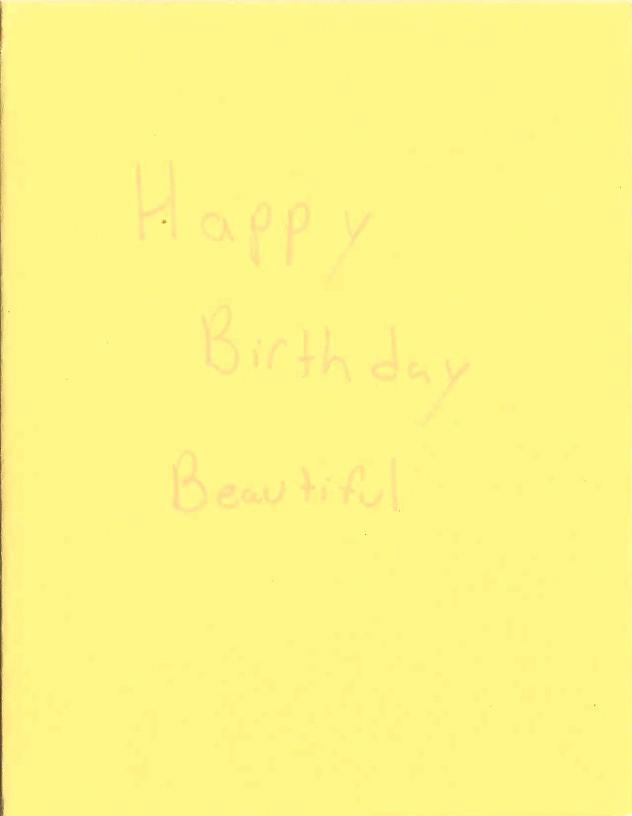 Happy
Birthday
Beautiful